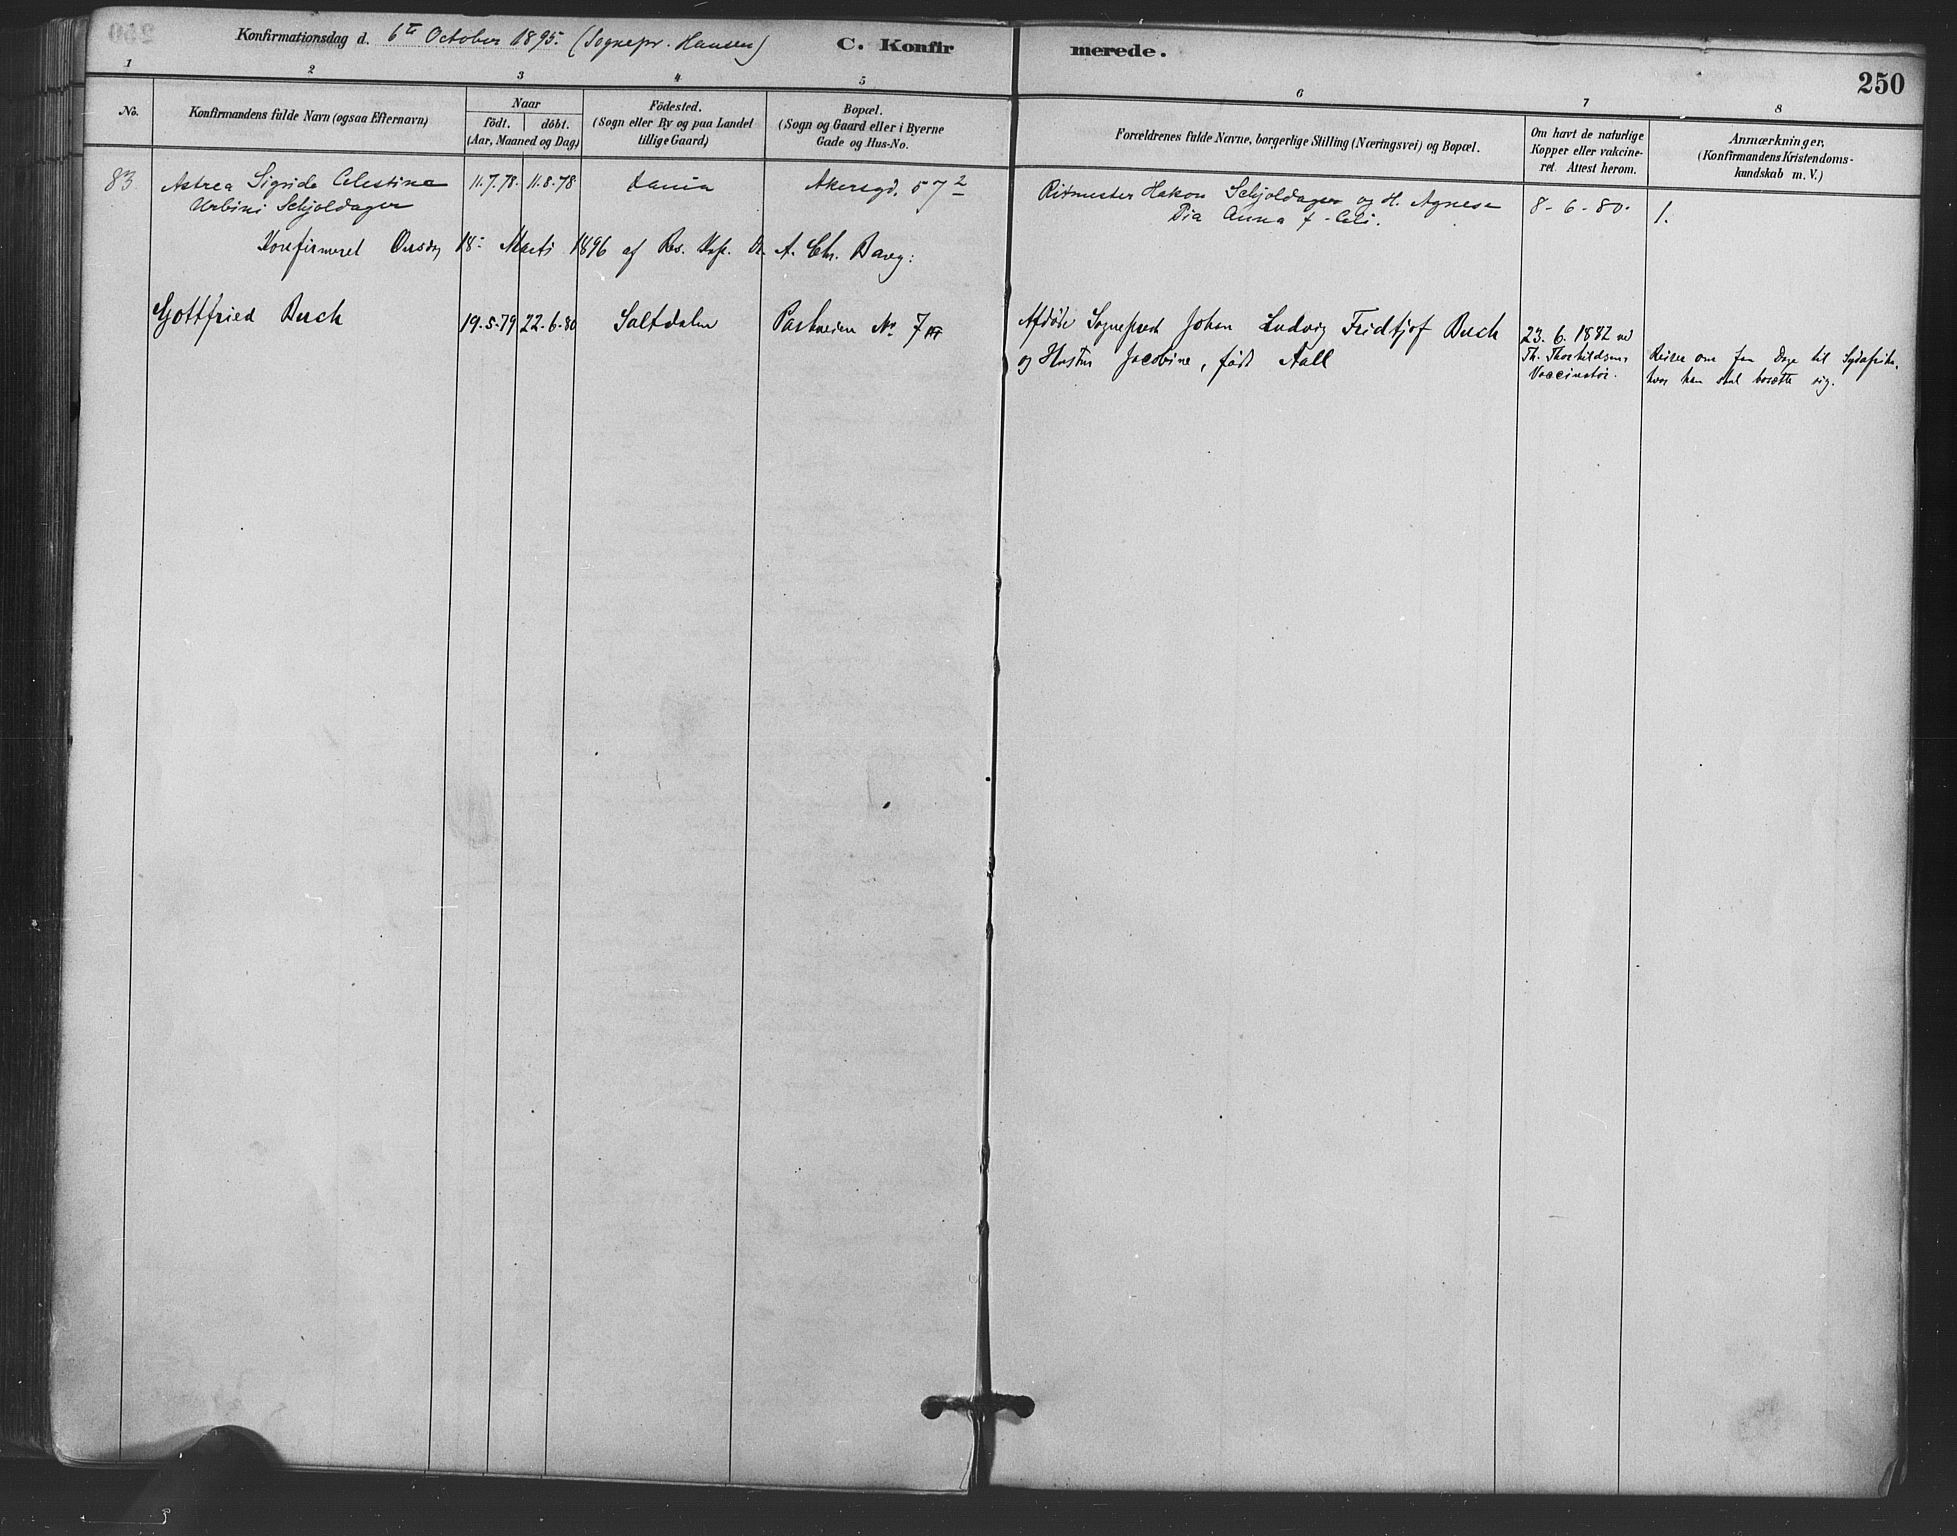 Konfirmationsdag d. 6te October 1895. (Sognepr. Hansen)
C. Konfirmerede.
250
1 2 3 4 5 6 7 8
No.
Konfirmandens fulde Navn (ogsaa Efternavn)
Naar
födt. döbt.
(Aar, Maaned og Dag)
Födested.
(Sogn eller By og paa Landet
tillige Gaard)
Bopæl.
(Sogn og Gaard eller i Byerne
Gade og Hus-No.
Forældrenes fulde Navne, borgerlige Stilling (Næringsvei) og Bopæl.
Om havt de naturlige
Kopper eller vakcine-
ret. Attest herom.
Anmærkninger.
(Konfirmandens Kristendoms-
kundskab m. V.)
83. Astrea Sigrida Celestina 11.7.78. 11.8.78 Akersgd. 57 2 Ritmester Hakon Schjoldager og H. Agnese 8-6-80. 1.
Urbini Schjoldager Pia Anna f.
Konfirmeret Onsdag 18 Marts 1896 af Res. Kap. A. Chr. Bang:
Gottfried Buch 19-5-79 22-6-80 Saltdalen Parkveien No 7 III Afdöde Sogneprest Johan Ludvig Fridtjof Buch 23. 6. 1882 ved
og Hustru Jacobine, födt Aall Th. Thorkildsen, Reiser om faa Dage til Sydafrika,
Vaccinatör. hvor han skal bosætte sig.